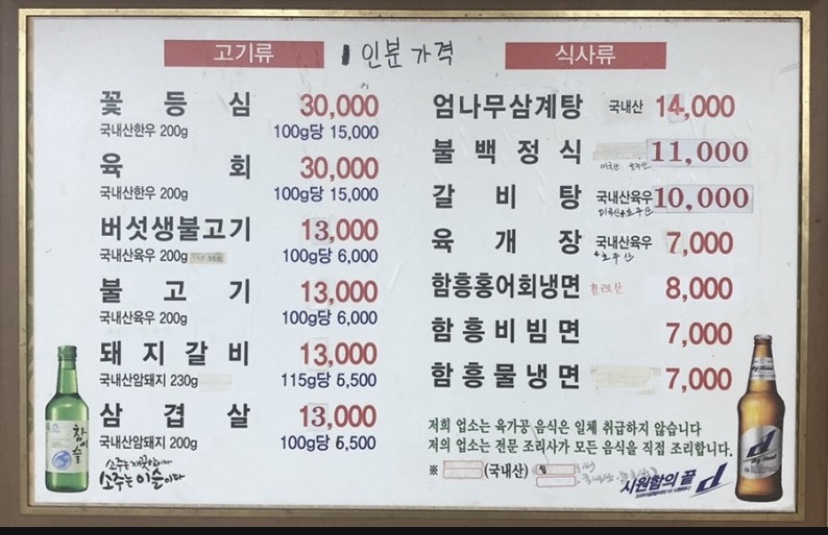 고기류 1인분 가격
꽃등심 30,000
국내산한우 200g 100g당 15,000
육회 30,000
국내산한우 200g 100g당 15,000
버섯생불고기 13,000
국내산육우 200g 100g당 6,000
불고기 13,000
국내산육우 200g 100g당 6,000
돼지갈비 13,000
국내산암돼지 230g 115g당 6,500
삼겹살 13,000
국내산암돼지 200g 100g당 6,500
참이슬
소주는 깨끗함이다
소주는 이슬이다
식사류
엄나무삼계탕 국내산 14,000
불백정식 11,000
미국산 호주산
갈비탕 국내산육우 10,000
미국산+호주산
육개장 국내산육우 7,000
+호주산
함흥홍어회냉면 칠레산 8,000
함흥비빔면 7,000
함흥물냉면 7,000
저희 업소는 육가공 음식은 일체 취급하지 않습니다
저의 업소는 전문 조리사가 모든 음식을 직접 조리합니다.
※ (국내산)
시원함의 끝 d